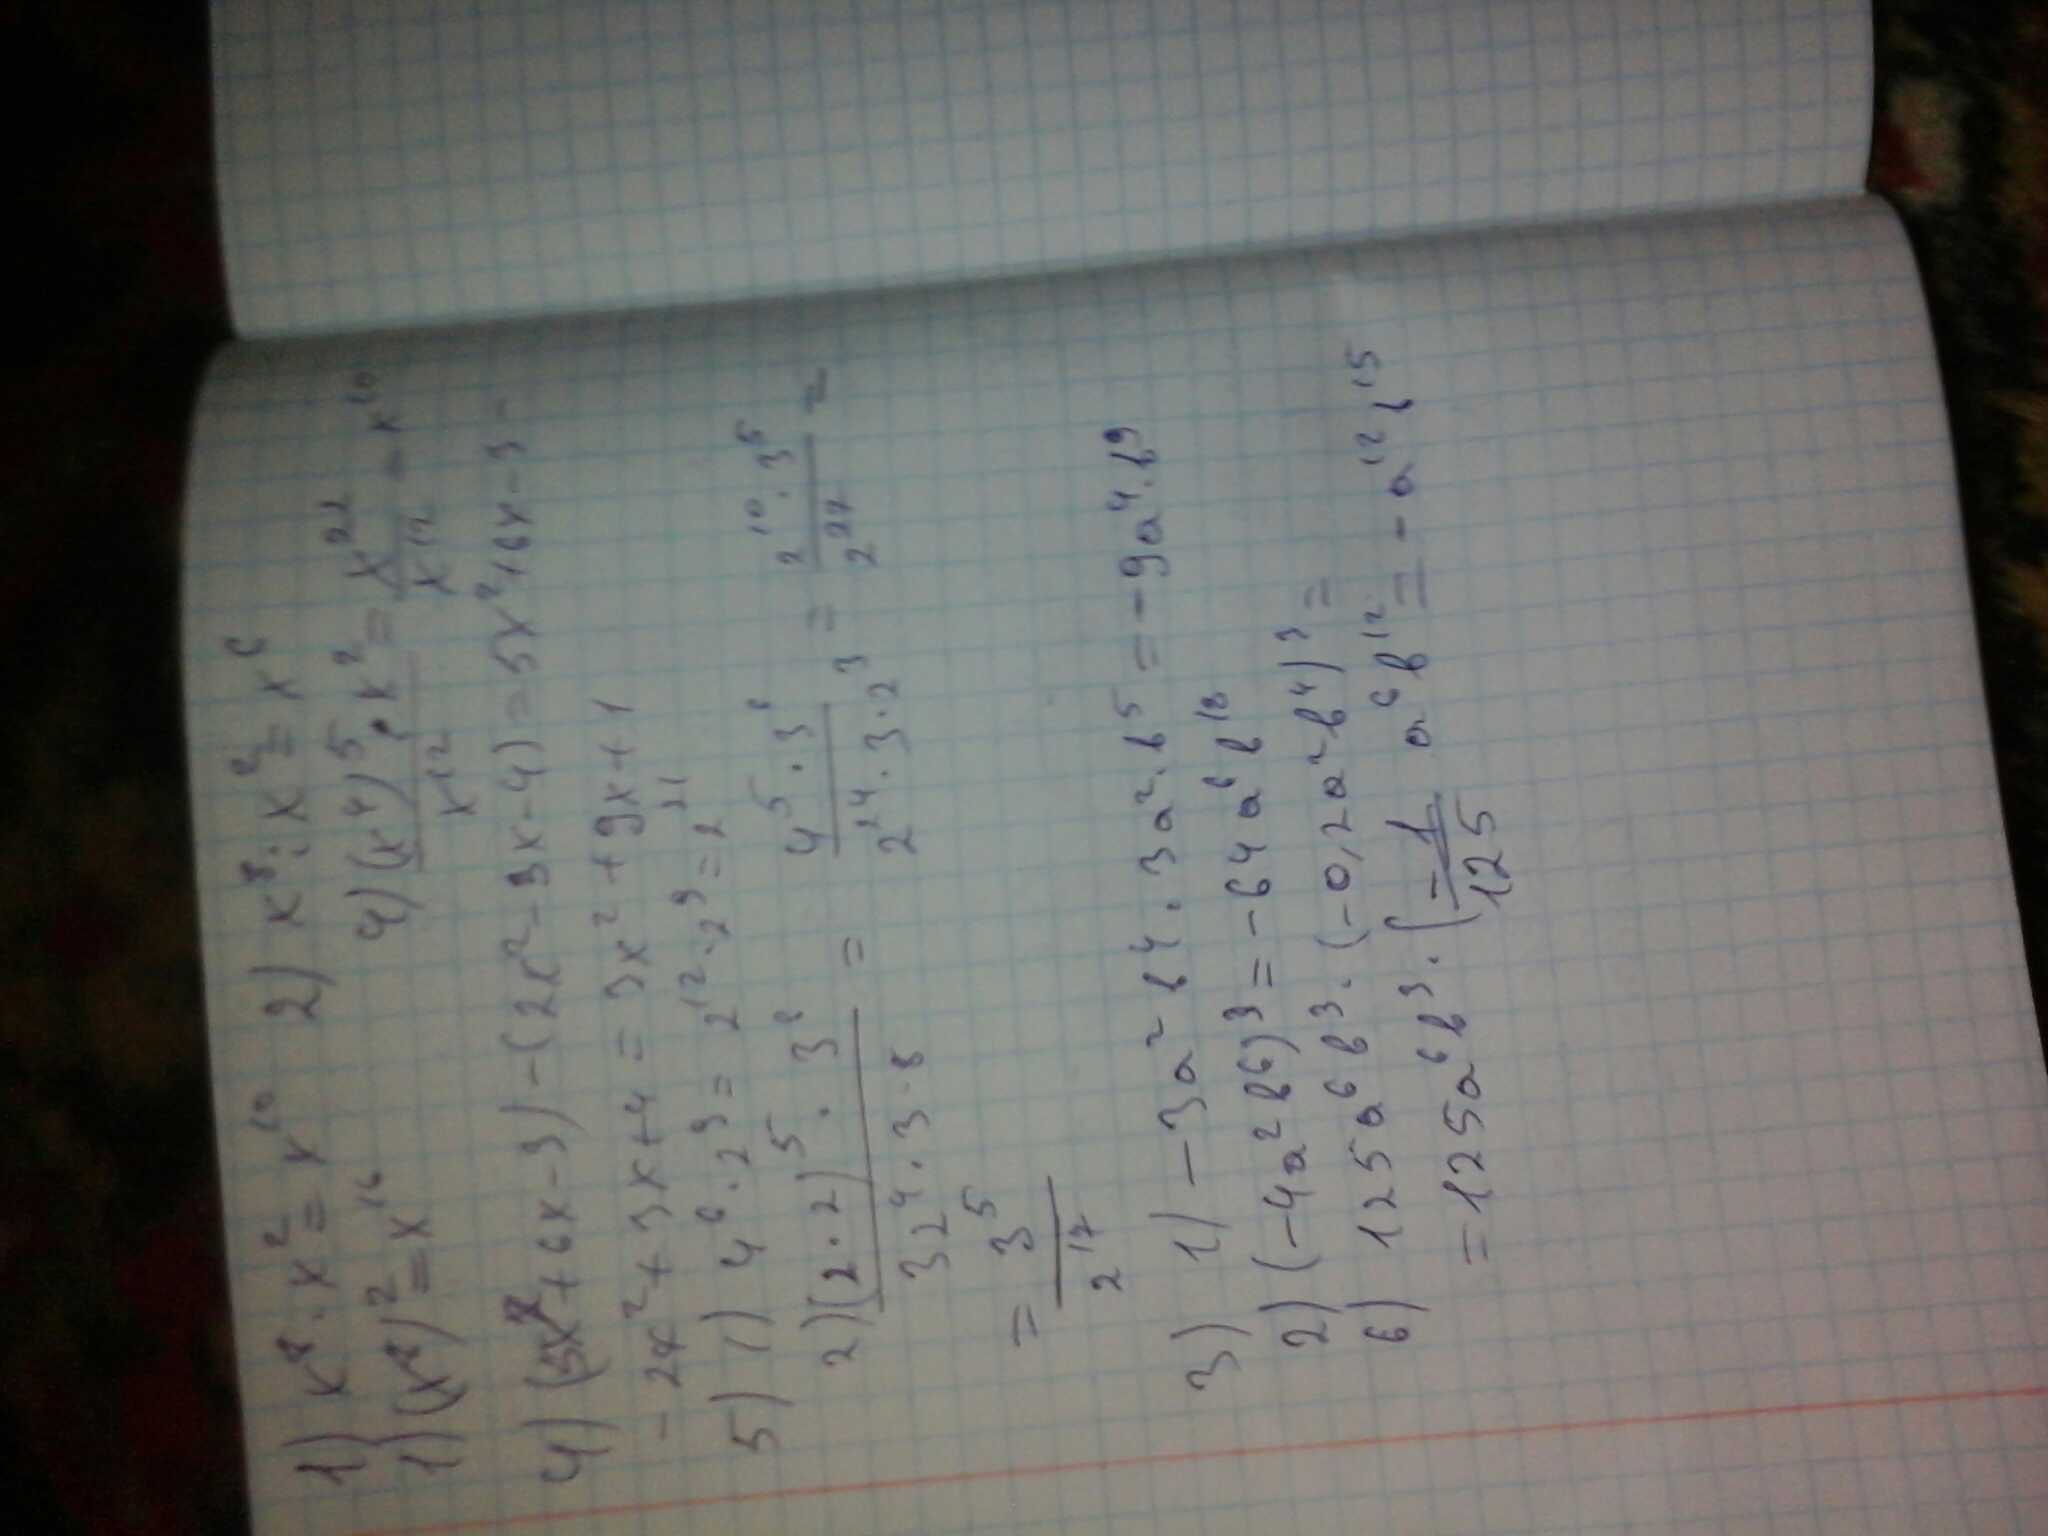 1) x⁸ · x² = x¹⁰ 2) x⁸ : x² = x⁶
1) (x⁸)² = x¹⁶ 4) (x⁴)⁵ · x² / x¹² = x²² / x¹² = x¹⁰
4) (5x² + 6x - 3) - (2x² - 3x - 4) = 5x² + 6x - 3 -
- 2x² + 3x + 4 = 3x² + 9x + 1
5) 1) 4⁶ · 2⁹ = 2¹² · 2⁹ = 2²¹
2) (2 · 2)⁵ · 3⁶ / 32⁴ · 3 · 8 = 4⁵ · 3⁶ / 2²⁴ · 3 · 2³ = 2¹⁰ · 3⁵ / 2²⁷ =
= 3⁵ / 2¹⁷
3) 1) -3a² b⁴ · 3a² · b⁵ = -9a⁴ · b⁹
2) (-4a² b⁶)³ = -64 a⁶ b¹⁸
6) 125a⁶ b³ · (-0,2a² b⁴)³ =
= 125a⁶ b³ · (- 1/125 a⁶ b¹² = - a¹² b¹⁵